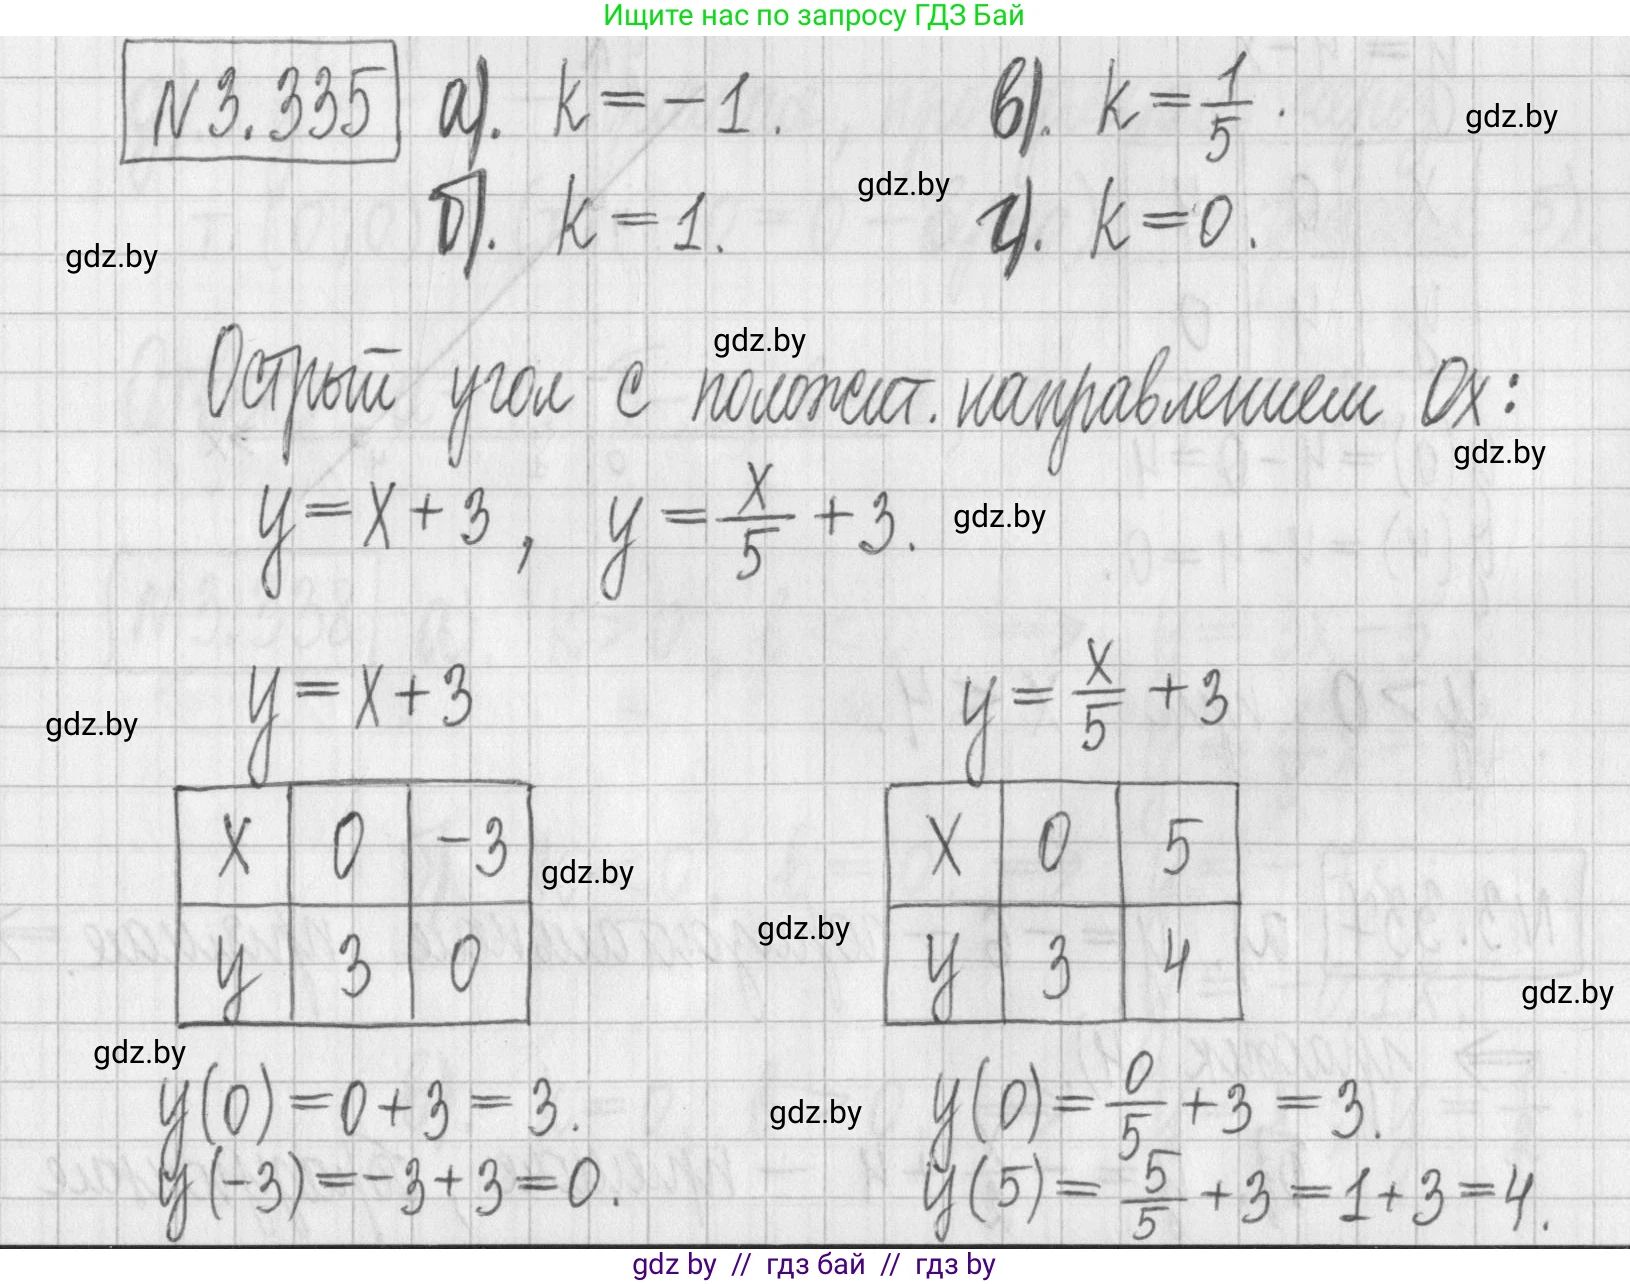 Ищите нас по запросу ГДЗ Бай
N 3.335 а). k = -1. в). k = 1/5.
gdz.by
gdz.by
б). k = 1. г). k = 0.
gdz.by
gdz.by
Острый угол с положит. направлением Ox:
gdz.by
y = x + 3, y = x/5 + 3.
gdz.by
y = x + 3 y = x/5 + 3
gdz.by
x 0 -3 x 0 5
gdz.by
gdz.by
y 3 0 y 3 4
gdz.by
gdz.by
y(0) = 0 + 3 = 3. y(0) = 0/5 + 3 = 3.
gdz.by
y(-3) = -3 + 3 = 0. y(5) = 5/5 + 3 = 1 + 3 = 4.
gdz by // гдз бай // gdz by